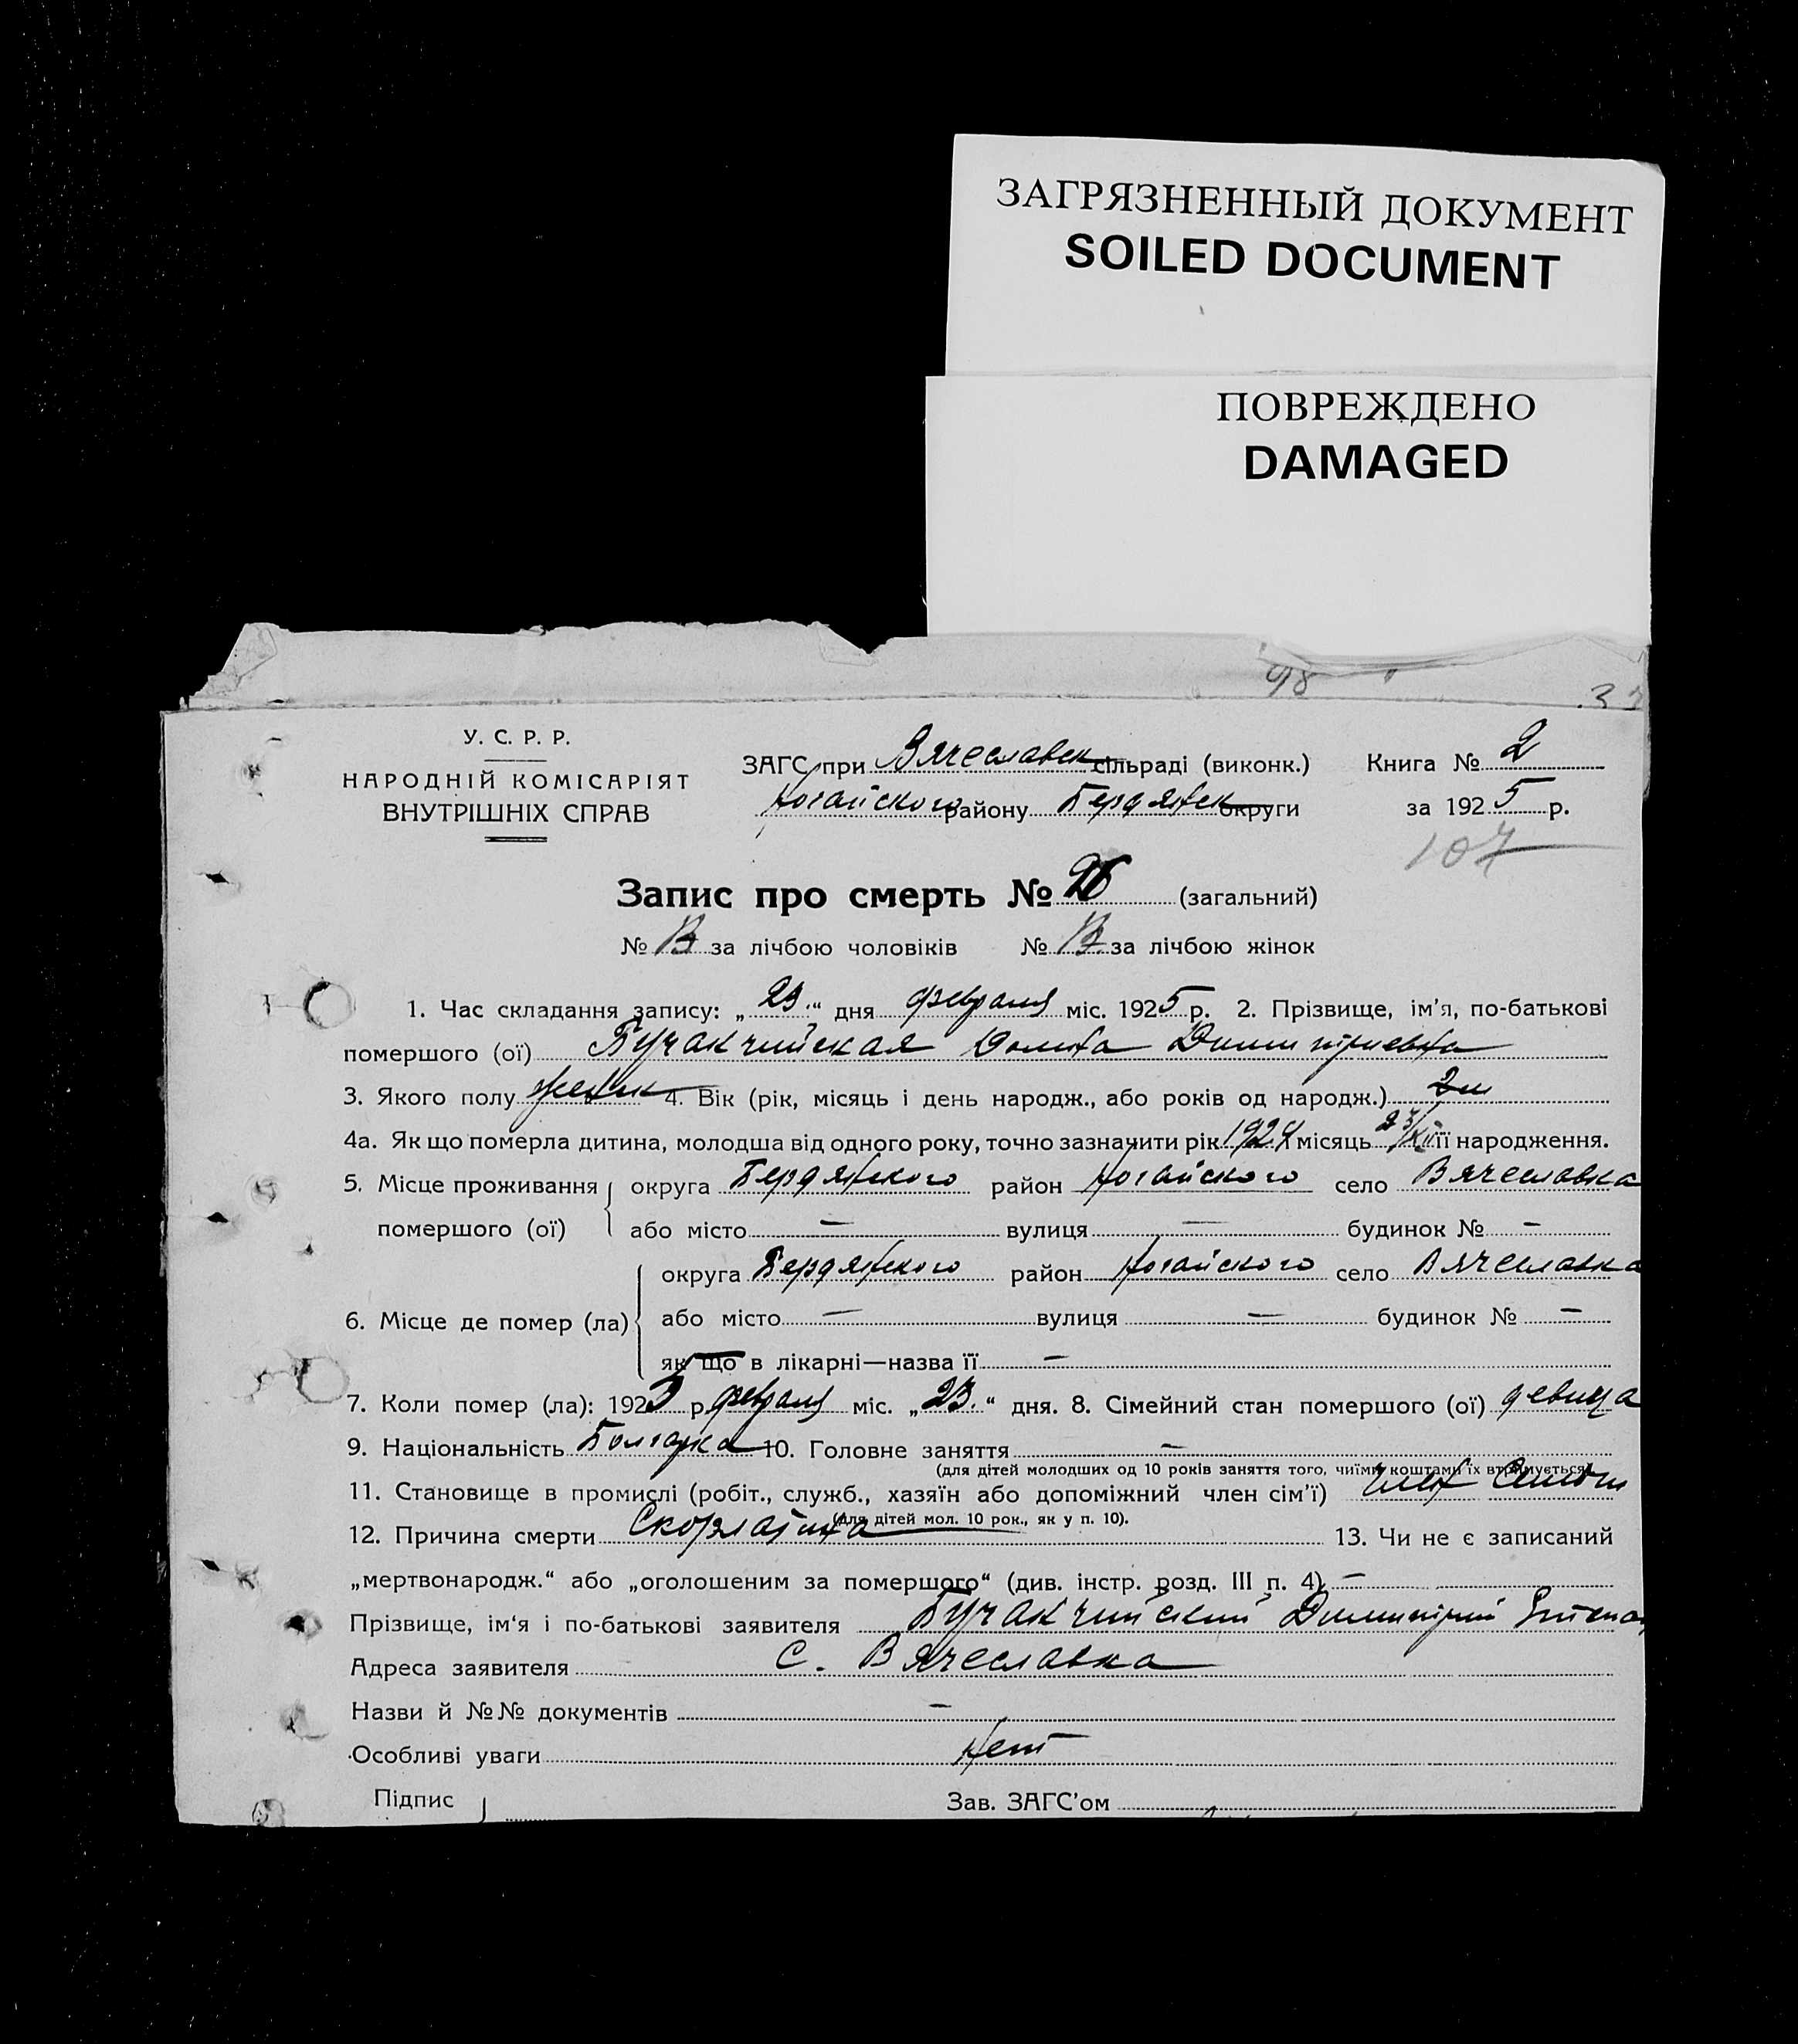 ЗАГРЯЗНЕННЫЙ ДОКУМЕНТ
SOILED DOCUMENT
ПОВРЕЖДЕНО
DAMAGED
98
У. С. Р. Р.
НАРОДНІЙ КОМІСАРІЯТ
ВНУТРІШНІХ СПРАВ
ЗАГС при Вячеславск сільраді (виконк.) Книга № 2
Ногайского району Бердянск округи за 1925 р.
107
Запис про смерть № 26 (загальний)
№ 13 за лічбою чоловіків № 13 за лічбою жінок
1. Час складання запису: „23.“ дня февраля міс. 1925 р. 2. Прізвище, ім’я, по-батькові
помершого (ої) Бучакчийская Домна Димитриевна
3. Якого полу женск 4. Вік (рік, місяць і день народж., або років од народж.) 2 м
4а. Як що померла дитина, молодша від одного року, точно зазначити рік 1924 місяць 23/XII її народження.
5. Місце проживання округа Бердянского район Ногайского село Вячеславка
помершого (ої) або місто — вулиця — будинок № —
округа Бердянского район Ногайского село Вячеславка
6. Місце де помер (ла) або місто — вулиця — будинок № —
як що в лікарні—назва її —
7. Коли помер (ла): 1925 р. февраля міс. „23.“ дня. 8. Сімейний стан помершого (ої) девица
9. Національність Болгарка 10. Головне заняття —
(для дітей молодших од 10 років заняття того, чиїми коштами їх втримується)
11. Становище в промислі (робіт., служб., хазяїн або допоміжний член сім’ї) член семьи
(для дітей мол. 10 рок., як у п. 10).
12. Причина смерти Скорлатина 13. Чи не є записаний
„мертвонародж.“ або „оголошеним за помершого“ (див. інстр. розд. III п. 4) —
Прізвище, ім‘я і по-батькові заявителя Бучакчийский Димитрий
Адреса заявителя С. Вячеславка
Назви й №№ документів —
Особливі уваги Нет
Підпис Зав. ЗАГС’ом